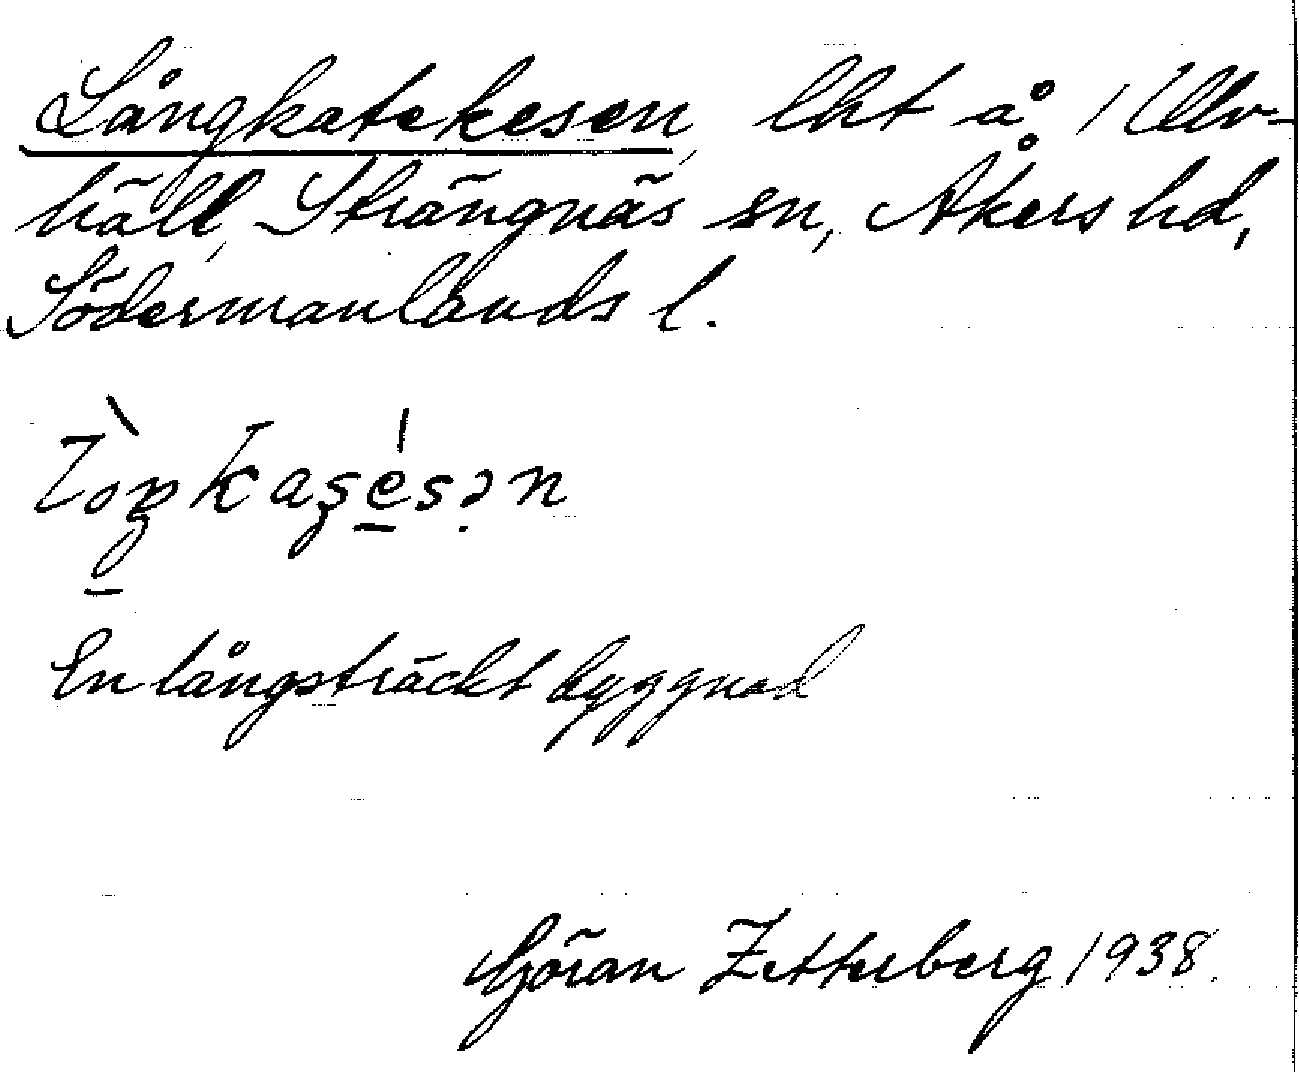 Långkatekesen, lht å 1 Ullv-
häll, Strängnäs sn, Åkers hd,
Södermanlands l.
En långsträckt byggnad
Göran Zetterberg 1938.